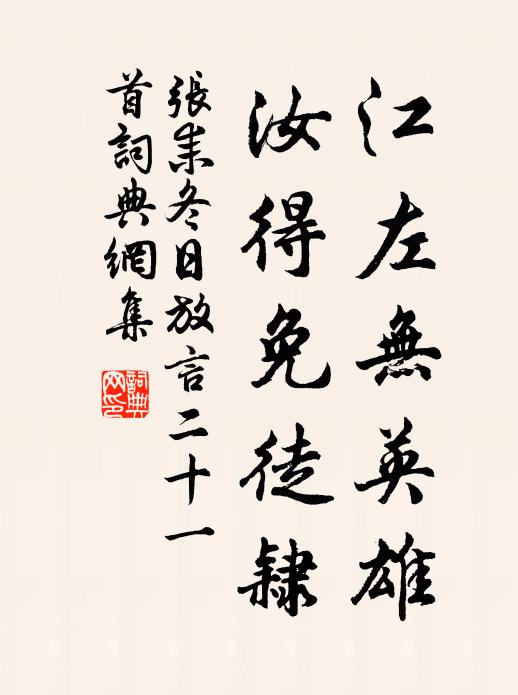 江左無英雄
汝得免徒隸
張耒冬日放言二十一
首詞典網集
詞典
网印